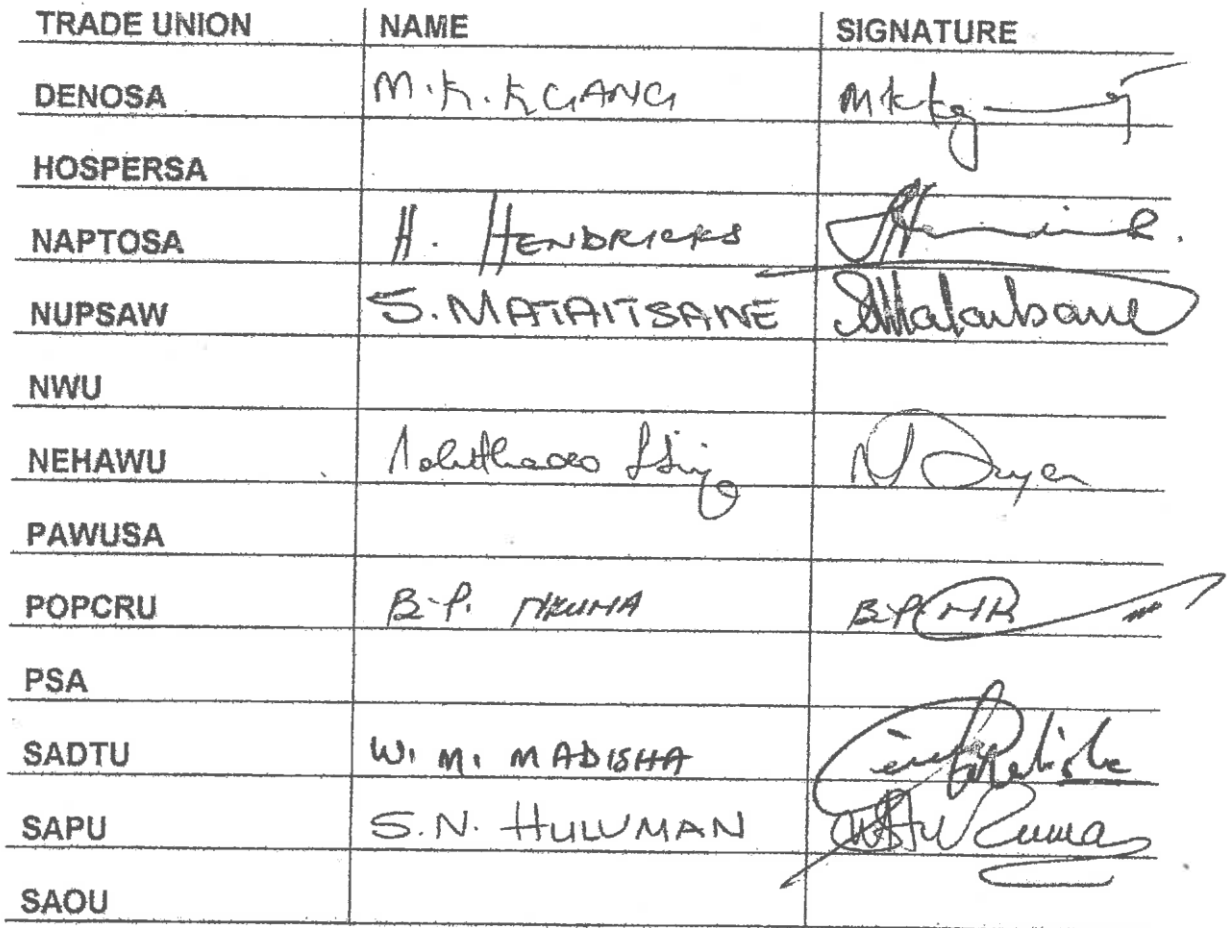 TRADE UNION NAME SIGNATURE
DENOSA M.K. KGANG
HOSPERSA
NAPTOSA H. HENDRICKS
NUPSAW S. MATAITSANE
NWU
NEHAWU
PAWUSA
POPCRU B.P.
PSA
SADTU W. M. MADISHA
SAPU S.N. HULUMAN
SAOU